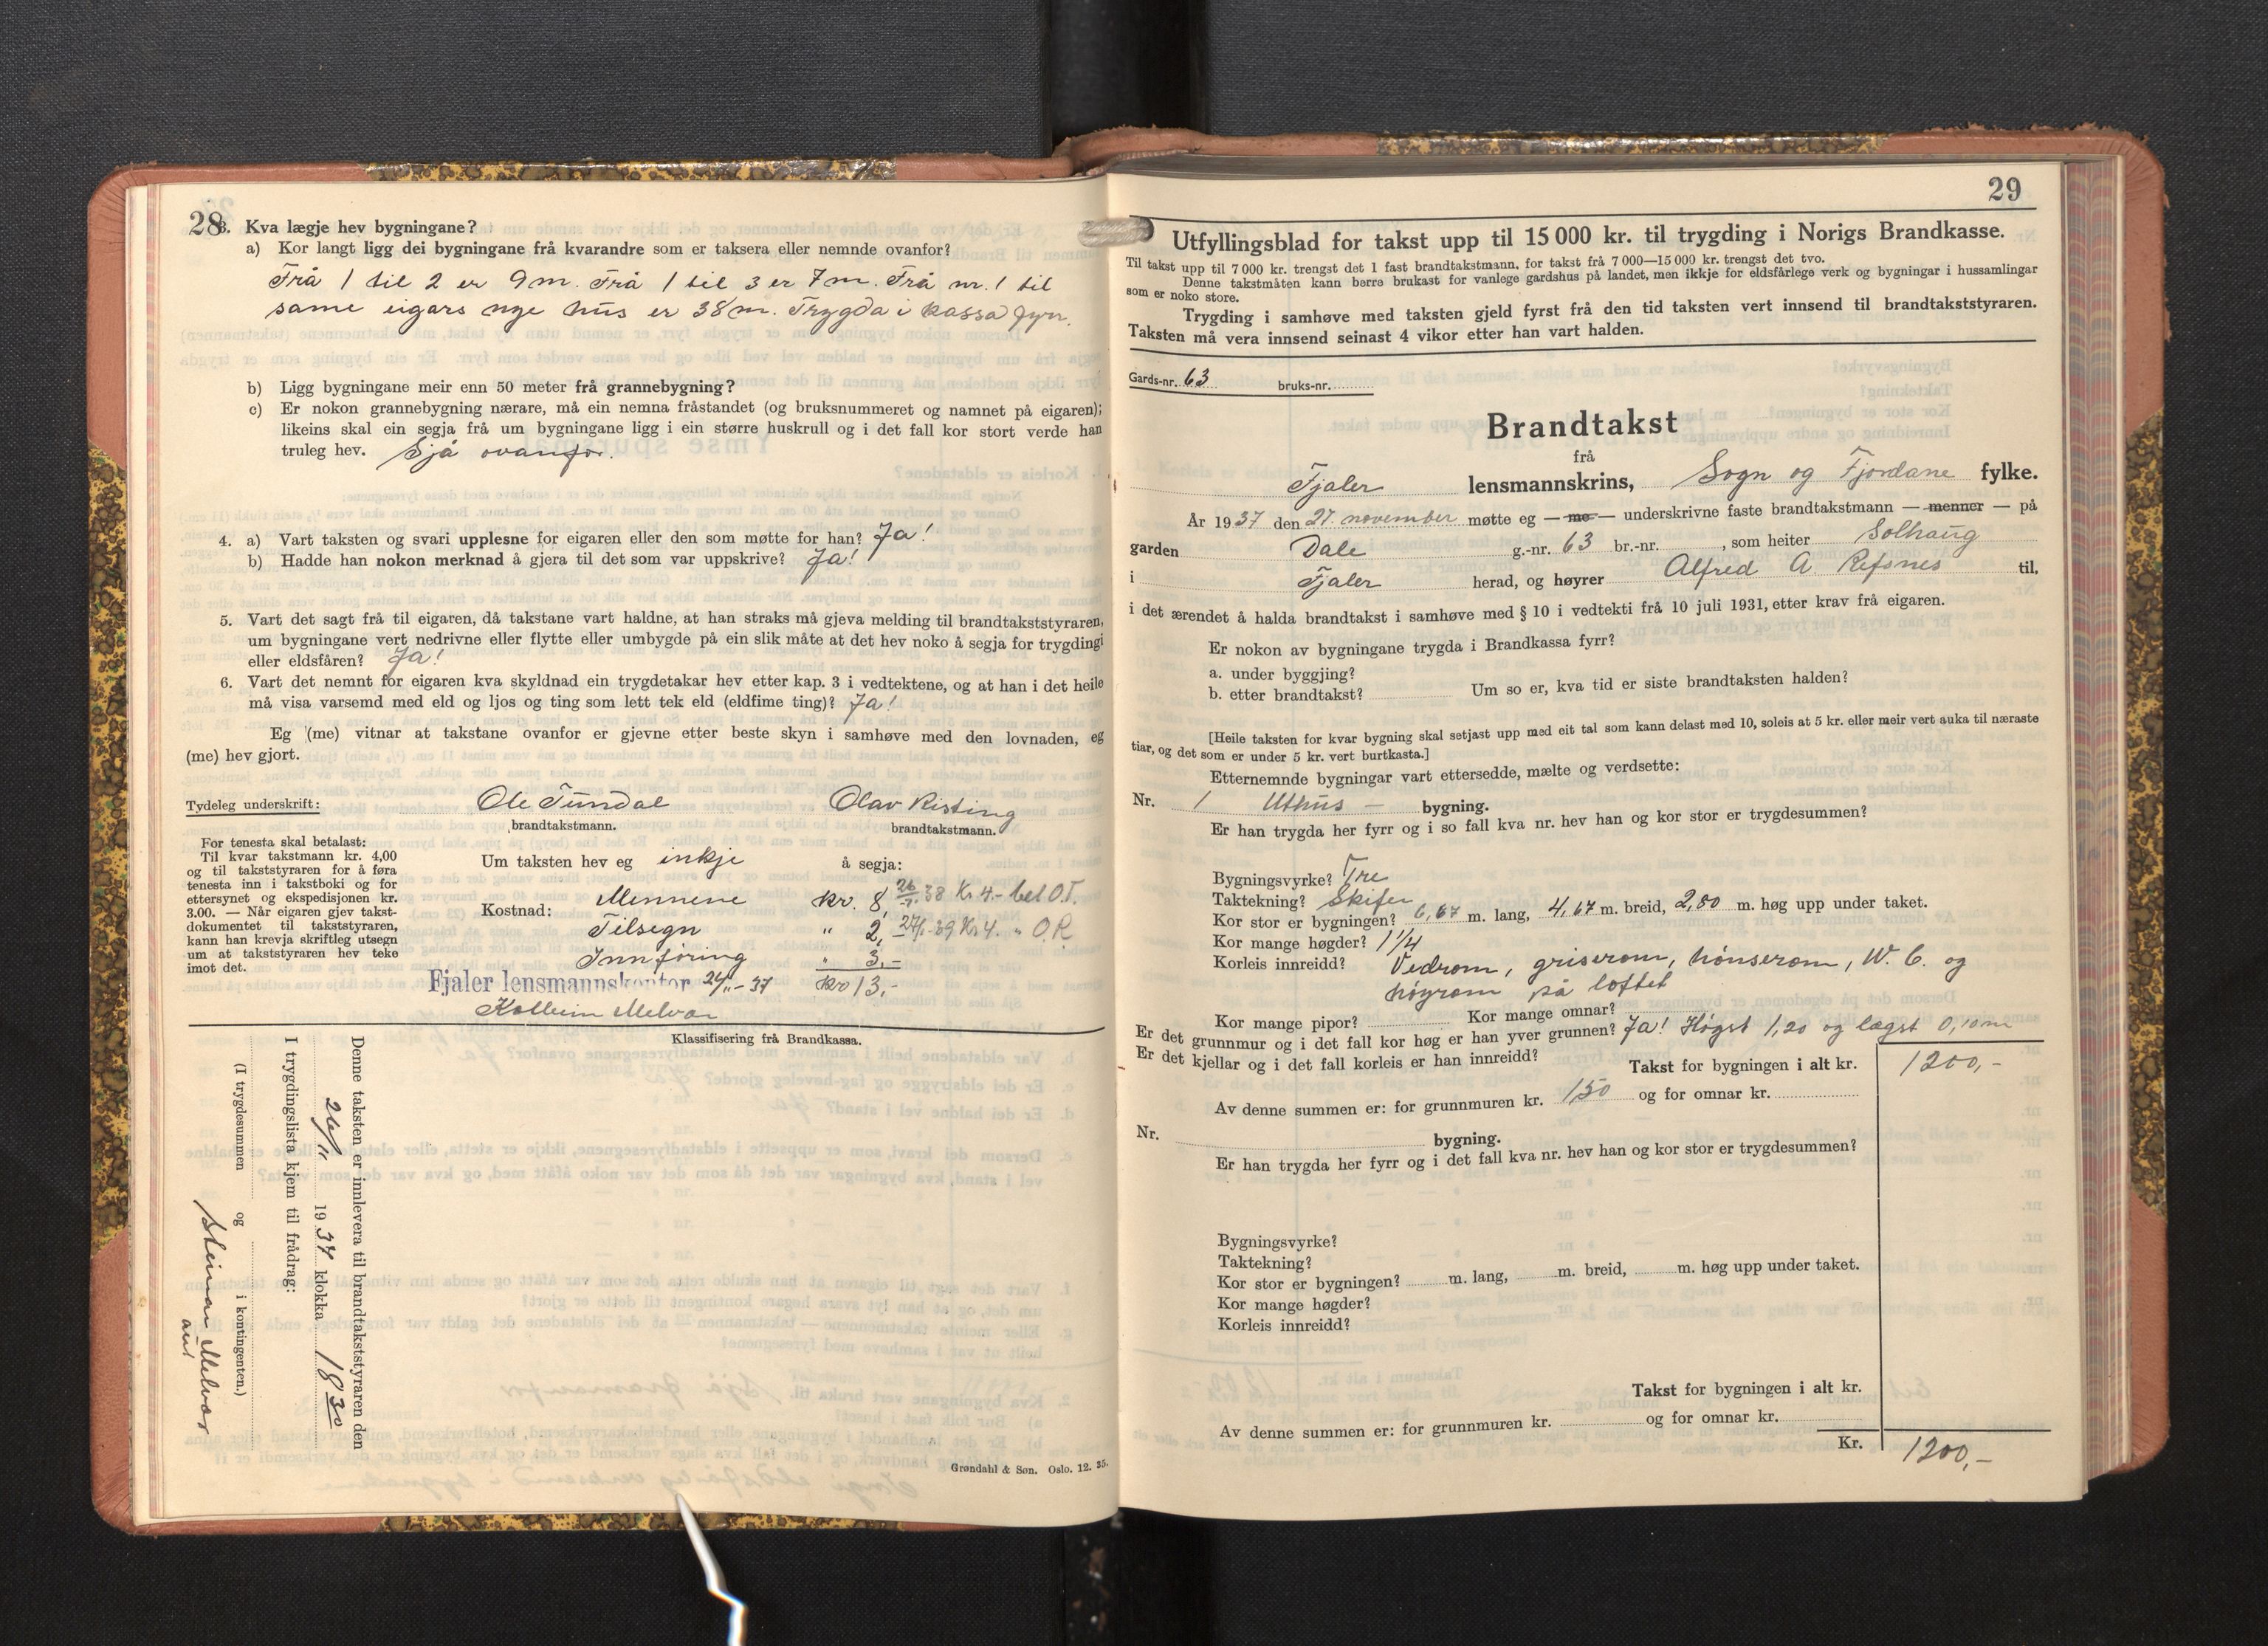 28
3. Kva lægje hev bygningane?
a) Kor langt ligg dei bygningane frå kvarandre som er taksera eller nemnde ovanfor?
Frå 1 til 2 er 9 m. Frå 1 til 3 er 7 m. Frå nr. 1 til
same eigars nye hus er 38 m. Trygda i kassa fyrr.
b) Ligg bygningane meir enn 50 meter frå grannebygning?
c) Er nokon grannebygning nærare, må ein nemna fråstandet (og bruksnummeret og namnet på eigaren);
likeins skal ein segja frå um bygningane ligg i ein større huskrull og i det fall kor stort verde han
truleg hev. Sjå ovanfor.
4. a) Vart taksten og svari upplesne for eigaren eller den som møtte for han? Ja!
b) Hadde han nokon merknad å gjera til det som var uppskrive? Ja!
5. Vart det sagt frå til eigaren, då takstane vart haldne, at han straks må gjeva melding til brandtakststyraren,
um bygningane vert nedrivne eller flytte eller umbygde på ein slik måte at det hev noko å segja for trygdingi
eller eldsfåren? Ja!
6. Vart det nemnt for eigaren kva skyldnad ein trygdetakar hev etter kap. 3 i vedtektene, og at han i det heile
må visa varsemd med eld og ljos og ting som lett tek eld (eldfime ting)? Ja!
Eg (me) vitnar at takstane ovanfor er gjevne etter beste skyn i samhøve med den lovnaden, eg
(me) hev gjort.
Tydeleg underskrift: Ole Tundal Olav Risting
brandtakstmann. brandtakstmann.
For tenesta skal betalast:
Til kvar takstmann kr. 4,00
og til takststyraren for å føra
tenesta inn i takstboki og for
ettersynet og ekspedisjonen kr.
3.00. — Når eigaren gjev takst-
dokumentet til takststyraren,
kann han krevja skriftleg utsegn
um at takststyraren hev teke
imot det.
Um taksten hev eg inkje å segja:
Kostnad: Mennene kr. 8, 26/7.38 Kr 4.- bet O.T.
Tilsegn " 2, 27/1-39 Kr 4. " O.R
Innføring " 3,-
Fjaler lensmannskontor 24/11-37 kr 13,-
Kolbein Melvær
Klassifisering frå Brandkassa.
Denne taksten er innlevera til brandtakststyraren den
26/11 1937 klokka 18 30
I trygdingslista kjem til frådrag:
(I trygdesummen og i kontingenten.)
Melvær
Grøndahl & Søn. Oslo. 12. 35.
29
Utfyllingsblad for takst upp til 15 000 kr. til trygding i Norigs Brandkasse.
Til takst upp til 7 000 kr. trengst det 1 fast brandtakstmann, for takst frå 7 000—15 000 kr. trengst det tvo.
Denne takstmåten kann berre brukast for vanlege gardshus på landet, men ikkje for eldsfårlege verk og bygningar i hussamlingar
som er noko store.
Trygding i samhøve med taksten gjeld fyrst frå den tid taksten vert innsend til brandtakststyraren.
Taksten må vera innsend seinast 4 vikor etter han vart halden.
Gards-nr. 63 bruks-nr.
Brandtakst
frå
Fjaler lensmannskrins, Sogn og Fjordane fylke.
År 1937 den 27. november møtte eg — me — underskrivne faste brandtakstmann — menner — på
garden Dale g.-nr. 63 br.-nr. , som heiter Solhaug
i Fjaler herad, og høyrer Alfred A. Refsnes til,
i det ærendet å halda brandtakst i samhøve med § 10 i vedtekti frå 10 juli 1931, etter krav frå eigaren.
Er nokon av bygningane trygda i Brandkassa fyrr?
a. under byggjing?
b. etter brandtakst? Um so er, kva tid er siste brandtaksten halden?
[Heile taksten for kvar bygning skal setjast upp med eit tal som kann delast med 10, soleis at 5 kr. eller meir vert auka til næraste
tiar, og det som er under 5 kr. vert burtkasta.]
Etternemnde bygningar vart ettersedde, mælte og verdsette:
Nr. 1 Uthus — bygning.
Er han trygda her fyrr og i so fall kva nr. hev han og kor stor er trygdesummen?
Bygningsvyrke? Tre
Taktekning? Skifer
Kor stor er bygningen? 6,67 m. lang, 4,67 m. breid, 2,80 m. høg upp under taket.
Kor mange høgder? 1 1/4
Korleis innreidd? Vedrom, griserom, hønserom, W. C. og
høyrom på loftet
Kor mange pipor? Kor mange omnar?
Er det grunnmur og i det fall kor høg er han yver grunnen? Ja! Høgst 1,20 og lægst 0,10 m
Er det kjellar og i det fall korleis er han innreidd?
Takst for bygningen i alt kr. 1200,-
Av denne summen er: for grunnmuren kr. 150 og for omnar kr.
Nr. bygning.
Er han trygda her fyrr og i det fall kva nr. hev han og kor stor er trygdesummen?
Bygningsvyrke?
Taktekning?
Kor stor er bygningen? m. lang, m. breid, m. høg upp under taket.
Kor mange høgder?
Korleis innreidd?
Takst for bygningen i alt kr.
Av denne summen er: for grunnmuren kr. og for omnar kr.
Kr. 1200,-